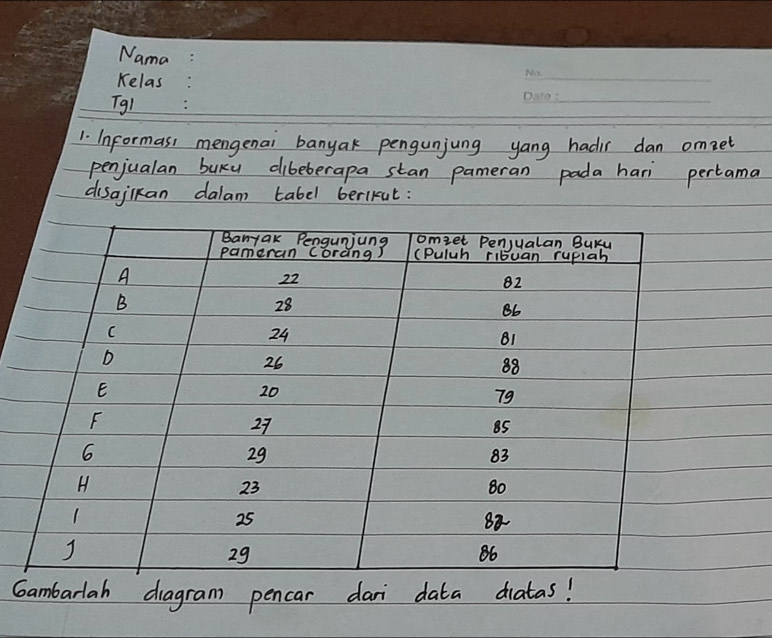 Nama :
Kelas :
Tgl :
No.
Date :
1. Informasi mengenai banyak pengunjung yang hadir dan omzet
penjualan buku dibeberapa stan pameran pada hari pertama
disajikan dalam tabel berikut :
Banyak Pengunjung Omzet Penjualan Buku
Pameran (orang) (Puluh ribuan rupiah
A 22 82
B 28 86
C 24 81
D 26 88
E 20 79
F 27 85
G 29 83
H 23 80
I 25 82
J 29 86
Gambarlah diagram pencar dari data diatas!